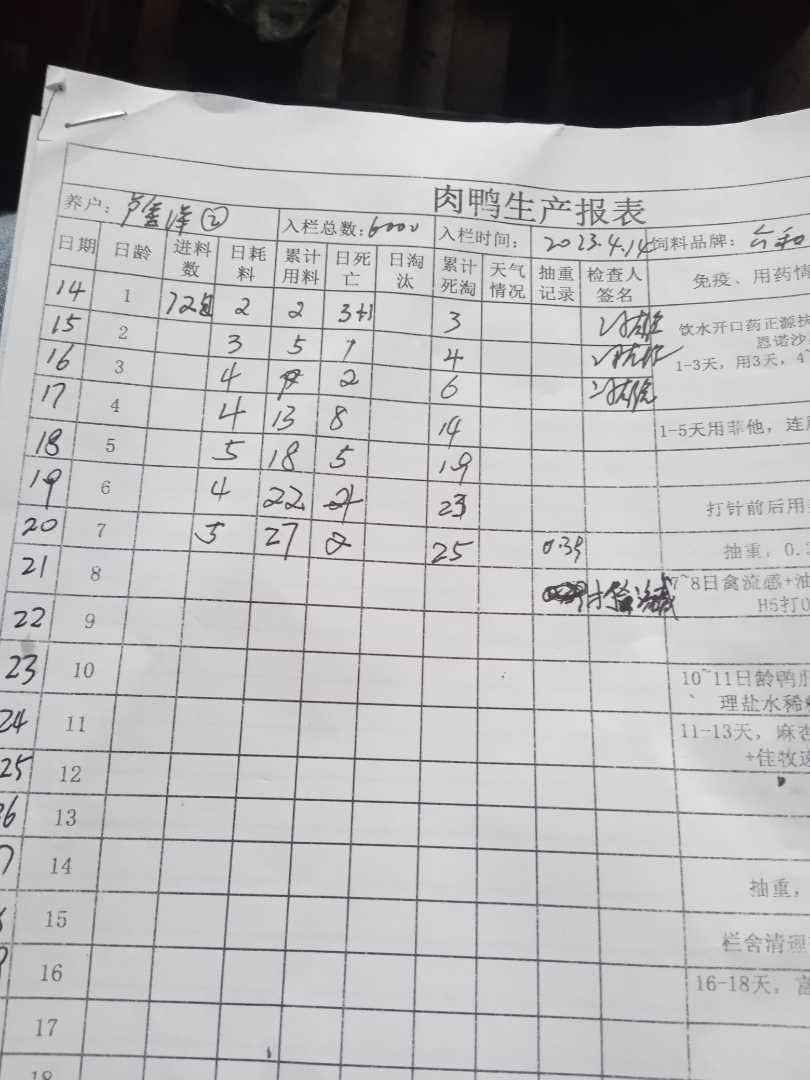 肉鸭生产报表
养户： ② 入栏总数：6000 入栏时间： 2023.4.14 饲料品牌： 台和
日期 日龄 进料数 日耗料 累计用料 日死亡 日淘汰 累计死淘 天气情况 抽重记录 检查人签名 免疫、用药情
14 1 72包 2 2 3+1 3 饮水开口药正源扶
恩诺沙
15 2 3 5 1 4
16 3 4 9 2 6 1-3天，用3天，4
17 4 4 13 8 14 1-5天用菲他，连
18 5 5 18 5 19
19 6 4 22 4 23 打针前后用
20 7 5 27 2 25 0.39 抽重，0.
21 8 7~8日禽流感+油
H5打0
22 9
23 10 10~11日龄鸭肝
理盐水稀
24 11 11-13天，麻杏
+佳牧
25 12
26 13
7 14 抽重，
15 栏舍清理
16 16-18天，
17
18